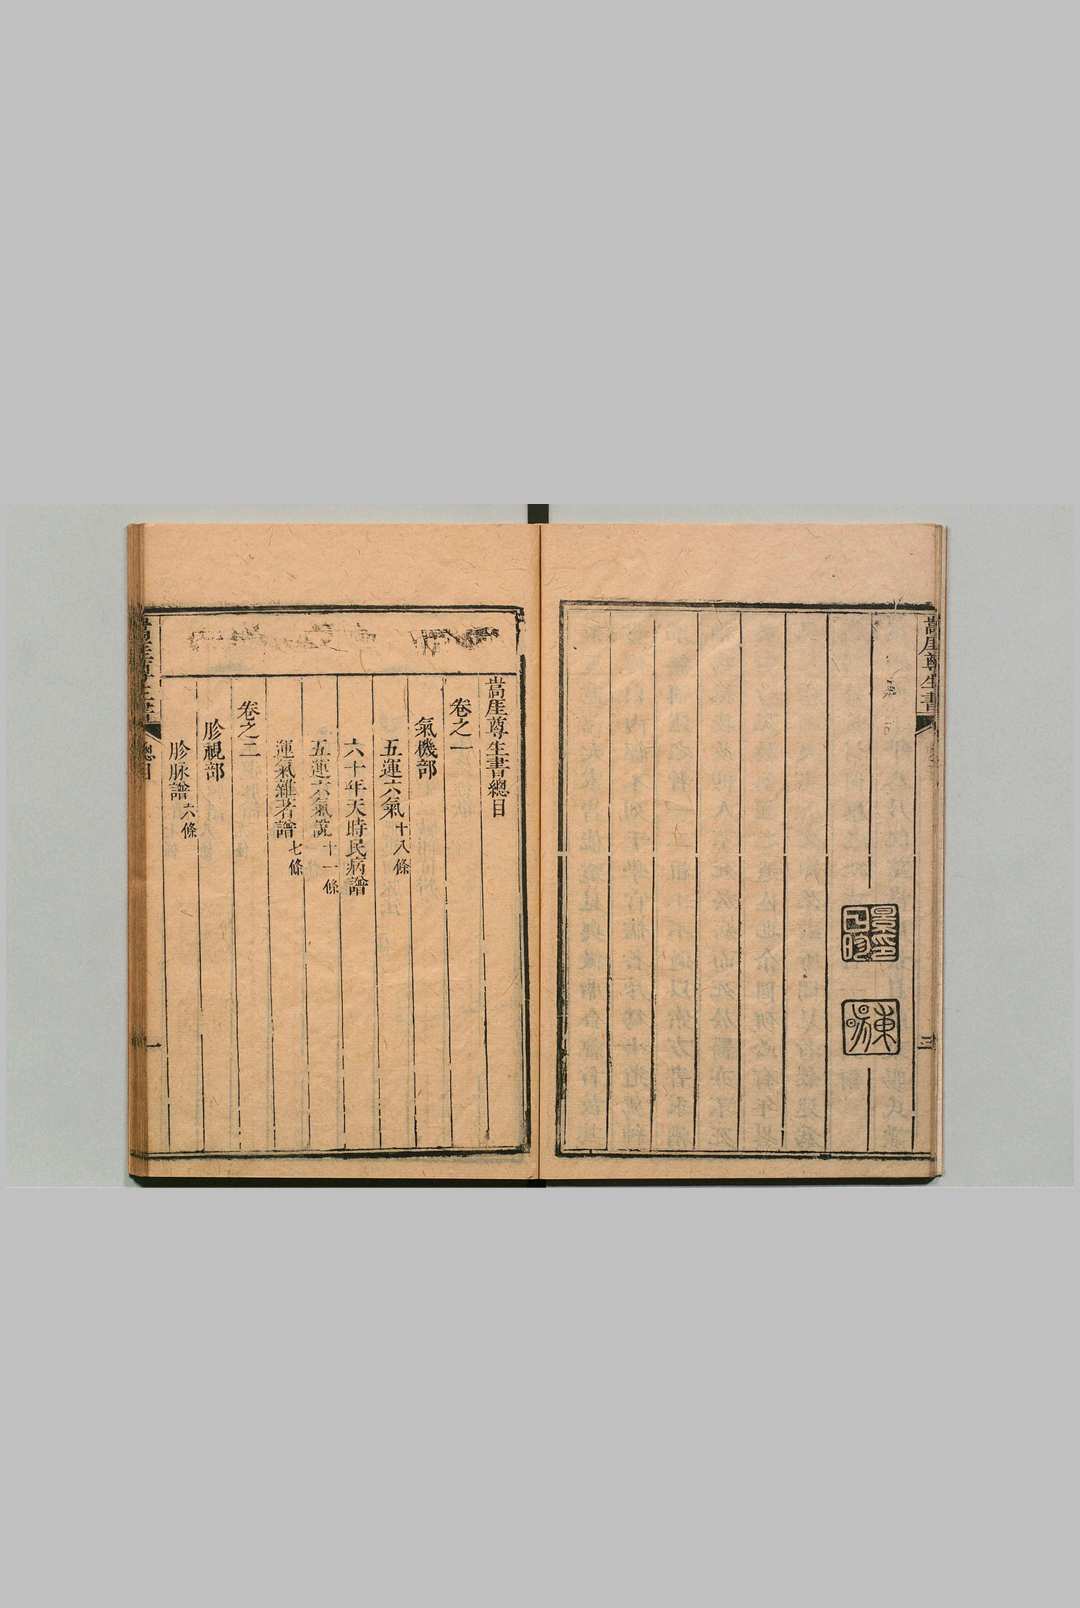 嵩厓尊生書
三
嵩厓尊生書總目
卷之一
氣機部
五運六氣十八條
六十年天時民病譜
五運六氣說十一條
運氣雜著譜七條
卷之二
胗視部
胗脉譜六條
嵩厓尊生書
總目
一